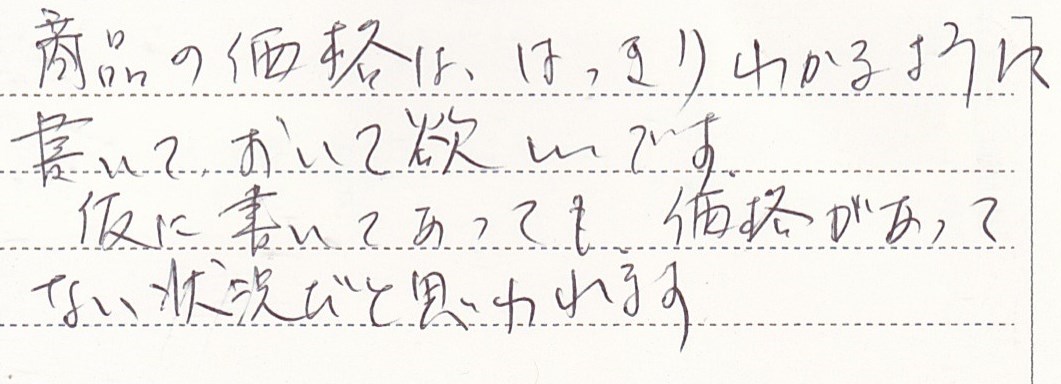 商品の価格は、はっきりわかるように
書いて、おいて欲しいです。
仮に書いてあっても、価格があって
ない状況だと思われます